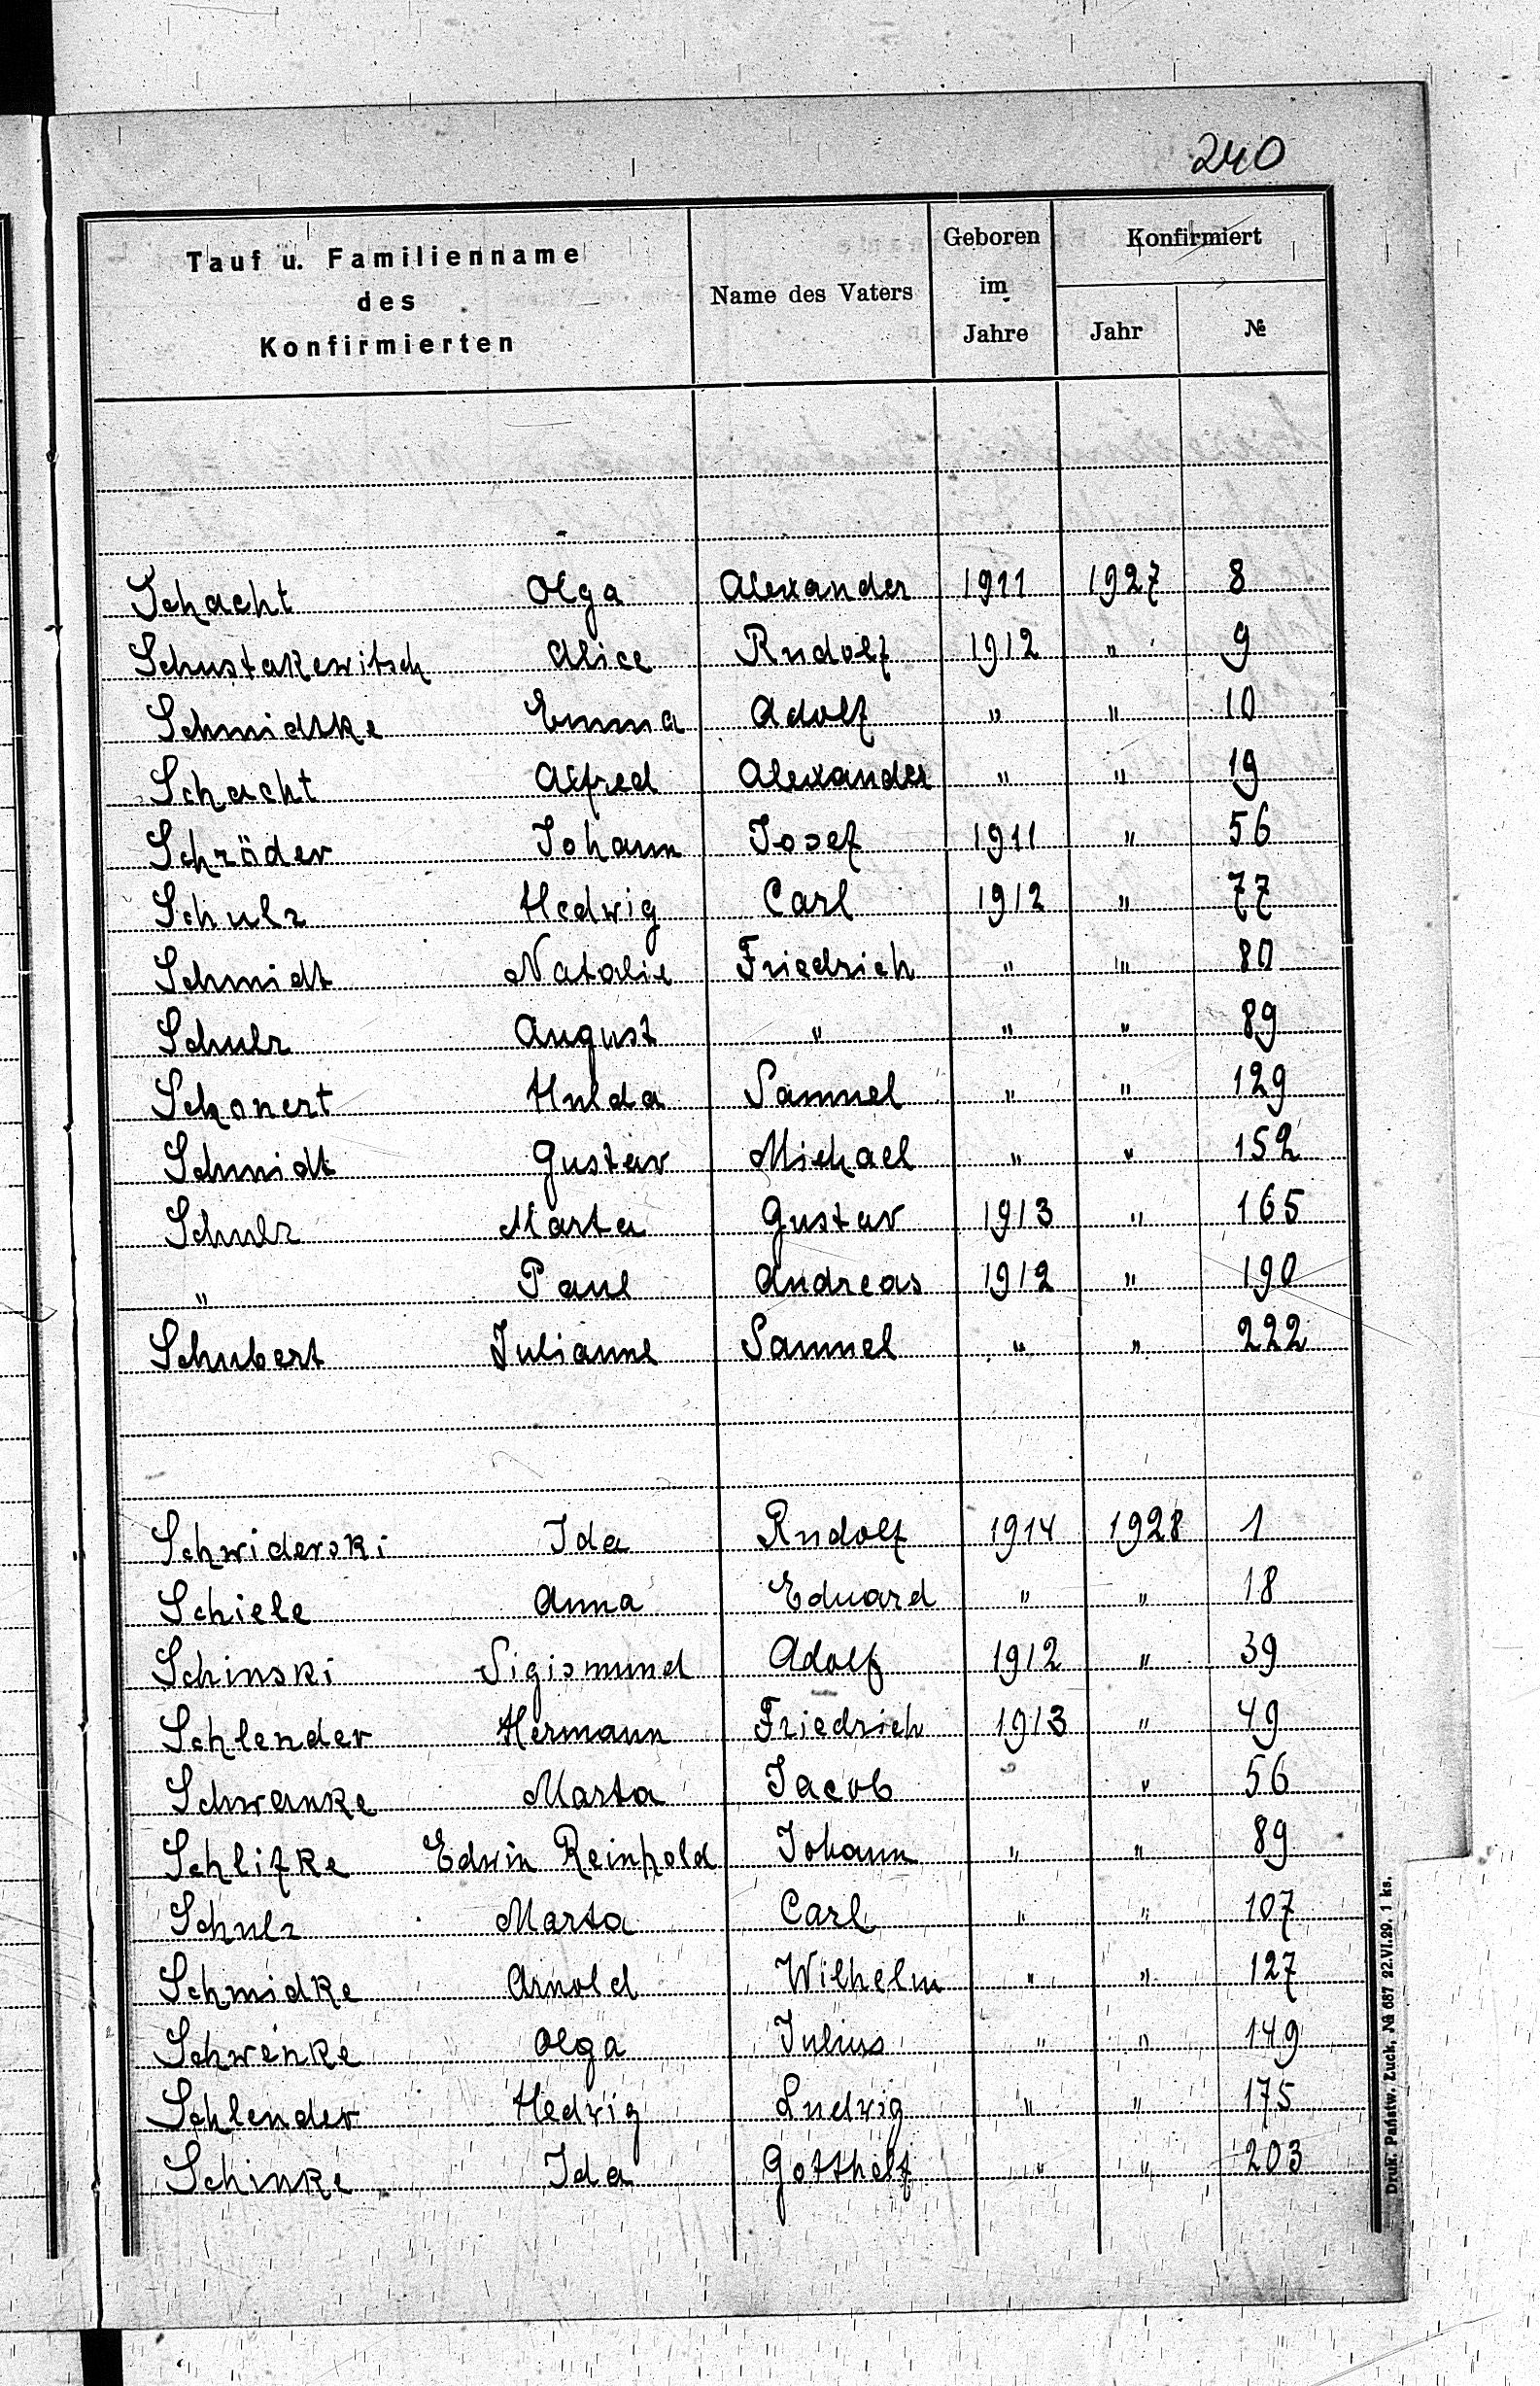 240
Tauf u. Familienname
des
Konfirmierten
Name des Vaters
Geboren
im
Jahre
Konfirmiert
Jahr
№
Schacht Olga Alexander 1911 1927 8
Schustakewitsch Alice Rudolf 1912 " 9
Schmidtke Emma Adolf " " 10
Schacht Alfred Alexander " " 19
Schröder Johann Josef 1911 " 56
Schulz Hedwig Carl 1912 " 77
Schmidt Natalie Friedrich " " 80
Schulz August " " " 89
Schonert Hulda Samuel " " 129
Schmidt Gustav Michael " " 152
Schulz Marta Gustav 1913 " 165
" Paul Andreas 1912 " 190
Schubert Julianne Samuel " " 222
Schwiderski Ida Rudolf 1914 1928 1
Schiele Anna Eduard " " 18
Schinski Sigismund Adolf 1912 " 39
Schlender Hermann Friedrich 1913 " 49
Schwanke Marta Jacob " 56
Schlifke Edwin Reinhold Johann " " 89
Schulz Marta Carl " " 107
Schmidke Arnold Wilhelm " " 127
Schwenke Olga Julius " " 149
Schlender Hedwig Ludwig " " 175
Schinke Ida Gotthelf " " 203
Druk. Państw. Łuck, № 687 22.VI.29. 1 ks.